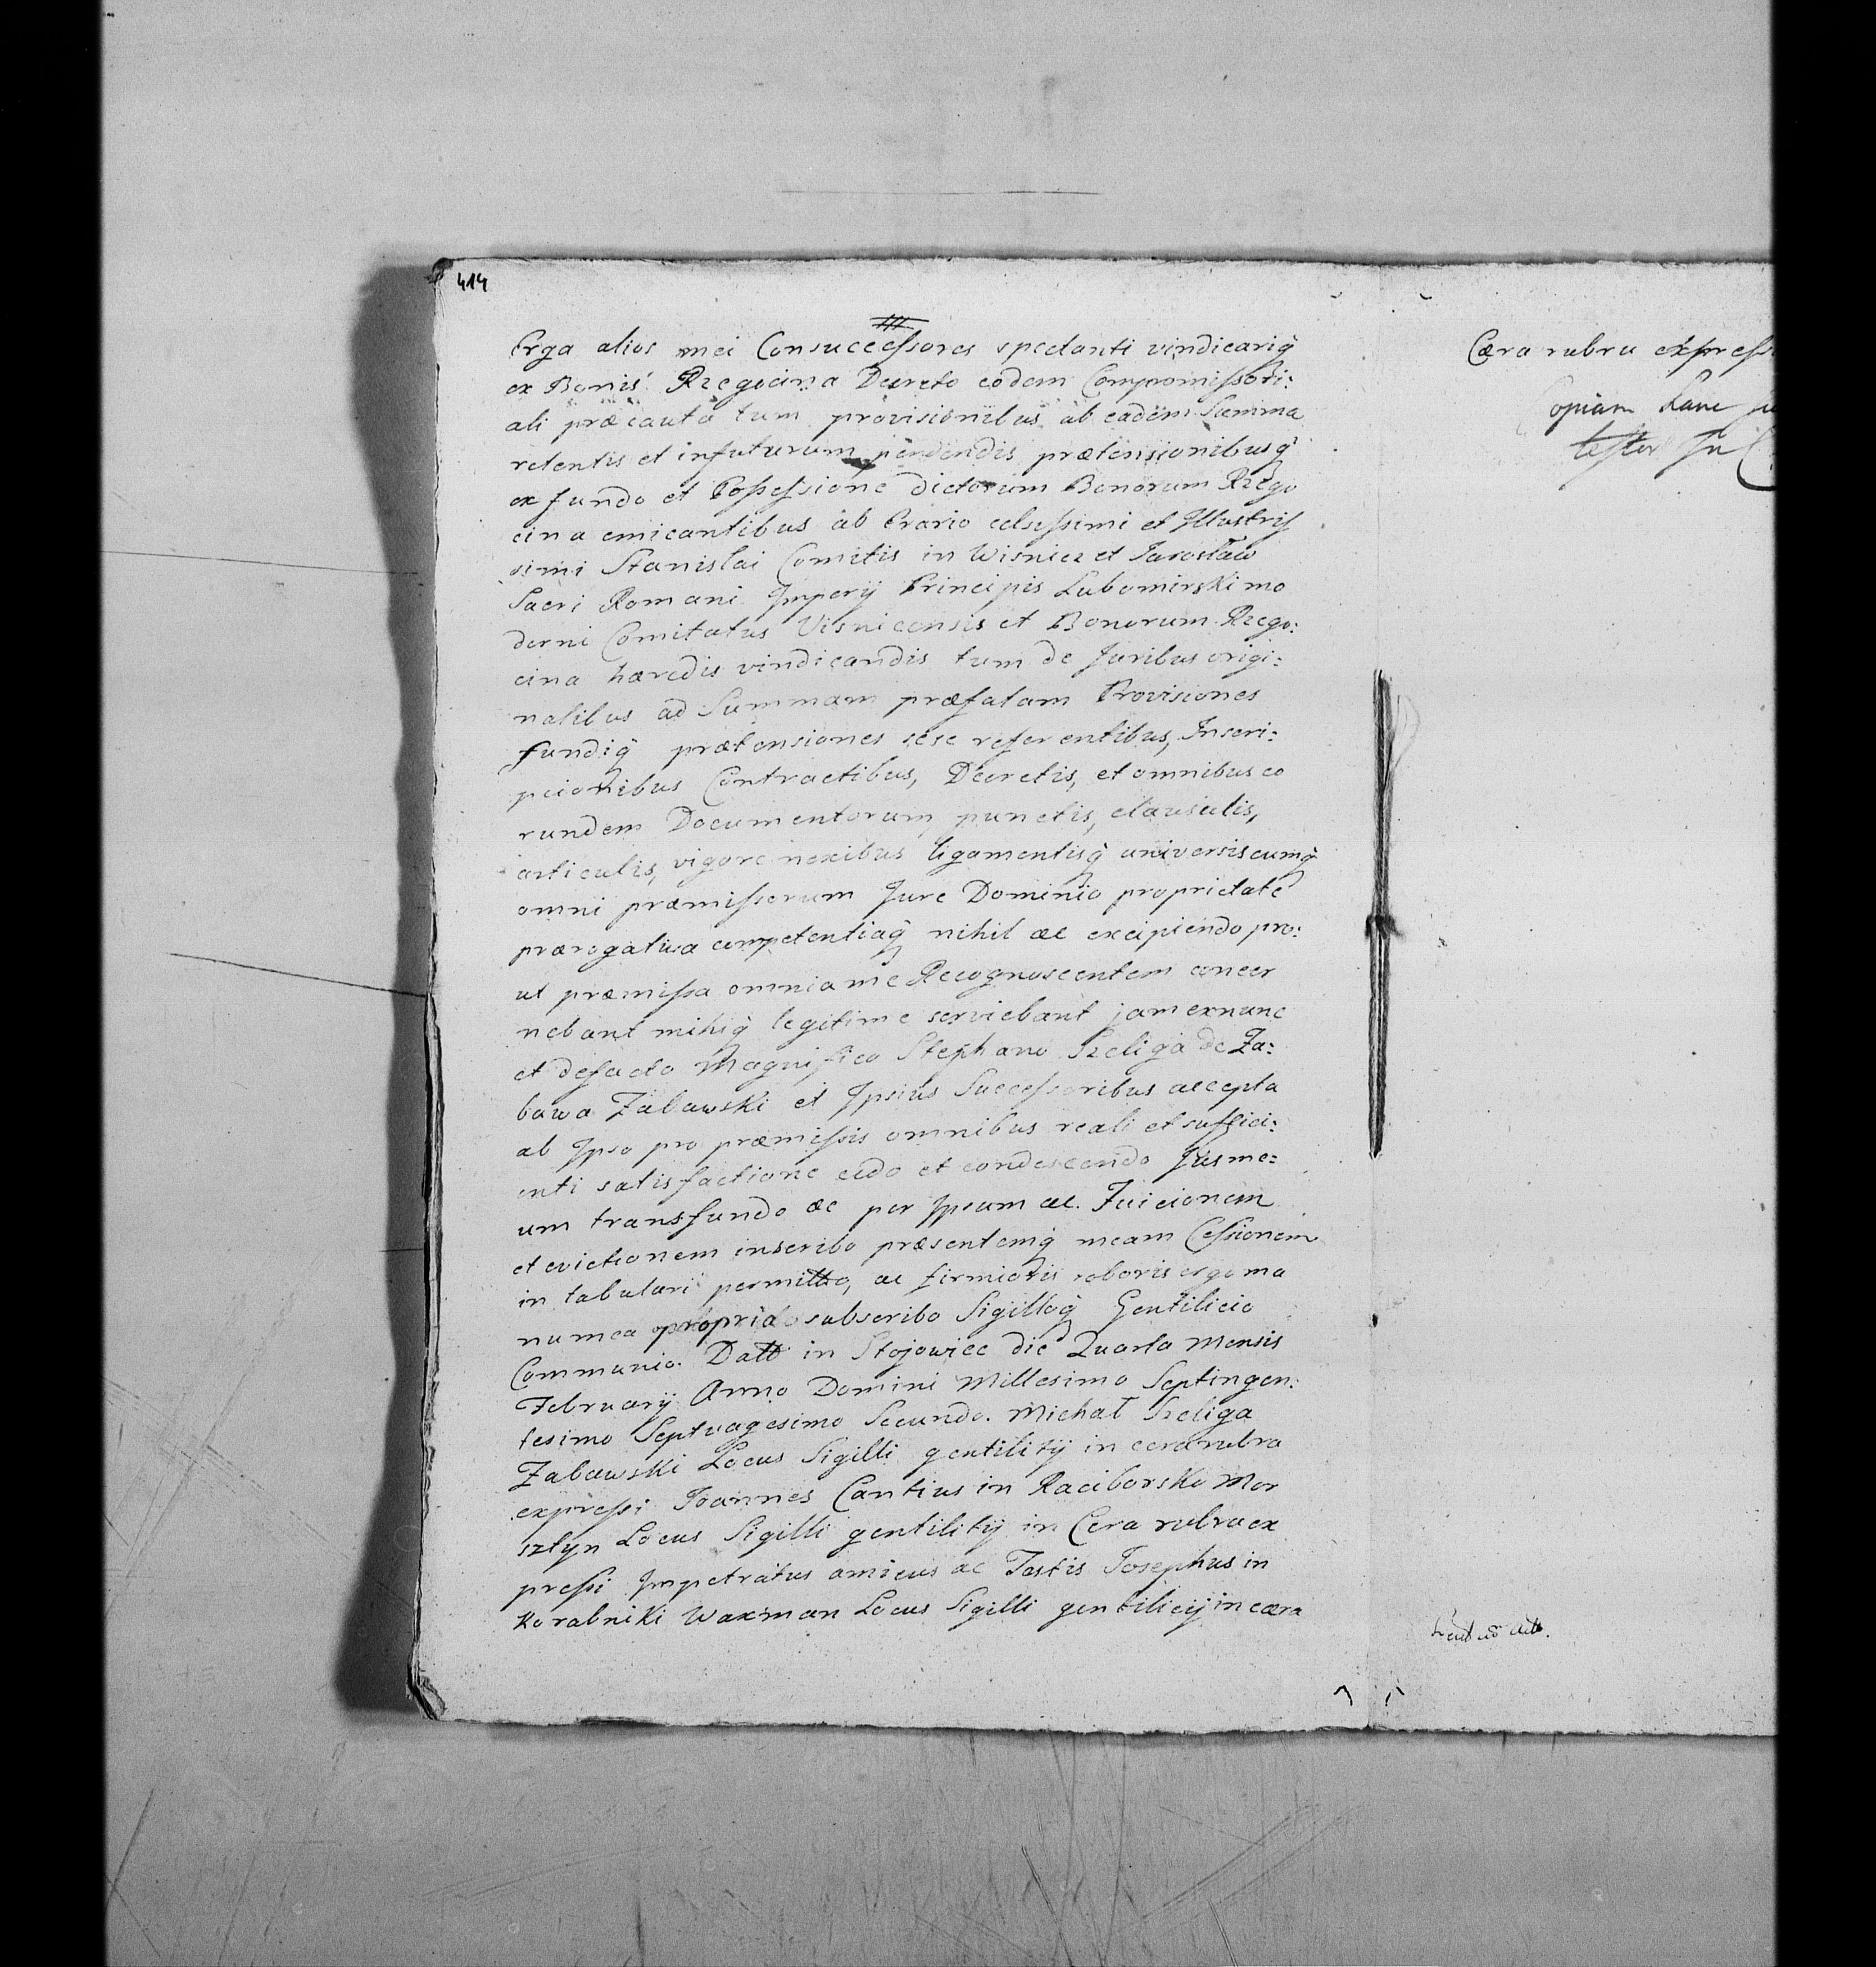 414
Erga alios mei Consuccessores spectanti vindicariq̃
ex Bonis Rzegocina Decreto eodem Compromissori:
ali præcauta tum provisionibus ab eadem Summa
retentis et infuturum pendendis prætensionibusq̃
ex fundo et Possessione dictorum Bonorum Rzego
cina emicantibus ab Erario celsissimi et Illustris
simi Stanislai Comitis in Wisnicz et Jarosław
Sacri Romani Imperÿ Principis Lubomirski mo
derni Comitatus Visnicensis et Bonorum Rzego:
cina hæredis vindicandis tum de Juribus origi:
nalibus ad Summam præfatam Provisiones
fundiq̃ prætensiones sese referentibus, Inscri:
pcionibus Contractibus, Decretis, et omnibus eo
rundem Documentorum punctis, clausulis,
articulis, vigore nexibus ligamentisq̃ universis cumq̃
omni præmissorum Jure Dominio proprietate
prærogativa competentiaq̃ nihil ac excipiendo pro:
ut præmissa omnia me Recognoscentem concer
nebant mihiq̃ legitime serviebant jam exnunc
et defacto Magnifico Stephano Szeliga de Za:
bawa Zabawski et Ipsius Successoribus accepta
ab Ipso pro præmissis omnibus reali et suffici:
enti satisfactione cedo et condescendo Jusme:
um transfundo ac per Ipsum ac. Tuicionem
et evictionem inscribo præsentemq̃ meam Cessionem
in tabulari permitto, ac firmioris roboris ergo ma
nu mea propria subscribo Sigilloq̃ Gentilicio
Communio. Datt in Stojowice die Quarta Mensis
Februarÿ Anno Domini Millesimo Septingen:
tesimo Septuagesimo Secundo. Michał Szeliga
Zabawski Locus Sigilli gentilitÿ in cera rubra
expressi Joannes Cantius in Raciborsko Mor
sztyn Locus Sigilli gentilitÿ in Cera rubra ex
pressi Impetratus amicus ac Testis Josephus in
Korabniki Waxman Locus Sigilli gentilicÿ in cæra
Cæra rubra express
Copiam hanc
testor